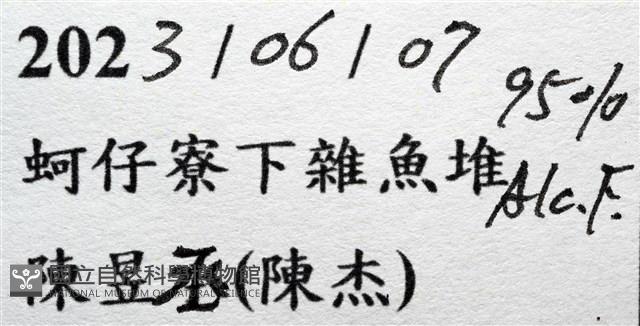 2023/06/07
95%
蚵仔寮下雜魚堆
Alc.F.
陳昱丞(陳杰)
國立自然科學博物館
NATIONAL MUSEUM OF NATURAL SCIENCE